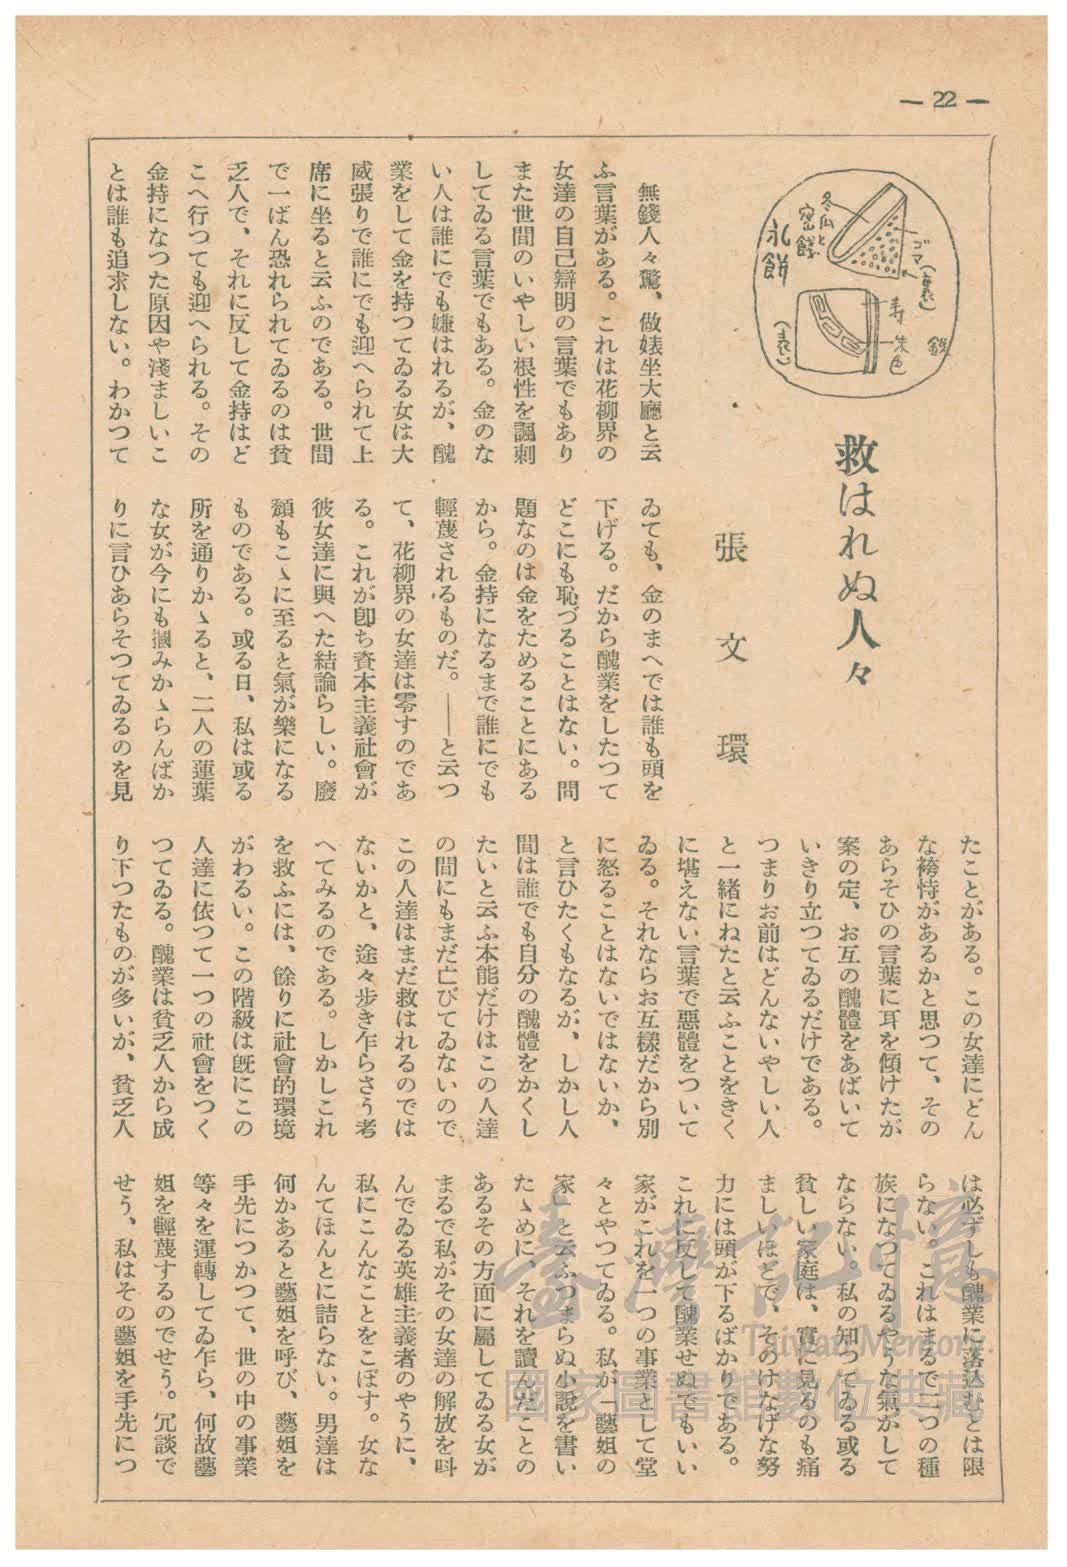 — 22 —
ゴマ(裏)
冬瓜と
蜜餞
氷餅
寿
朱色
(表)
救はれぬ人々
張文環
無錢人々驚、做婊坐大廳と云
ふ言葉がある。これは花柳界の
女達の自己辯明の言葉でもあり
また世間のいやしい根性を諷刺
してゐる言葉でもある。金のな
い人は誰にでも嫌はれるが、醜
業をして金を持つてゐる女は大
威張りで誰にでも迎へられて上
席に坐ると云ふのである。世間
で一ばん恐れられてゐるのは貧
乏人で、それに反して金持はど
こへ行つても迎へられる。その
金持になつた原因や淺ましいこ
とは誰も追求しない。わかつて
ゐても、金のまへでは誰も頭を
下げる。だから醜業をしたつて
どこにも恥づることはない。問
題なのは金をためることにある
から。金持になるまで誰にでも
輕蔑されるものだ。——と云つ
て、花柳界の女達は零すのであ
る。これが卽ち資本主義社會が
彼女達に與へた結論らしい。廢
頽もこゝに至ると氣が樂になる
ものである。或る日、私は或る
所を通りかゝると、二人の蓮葉
な女が今にも摑みかゝらんばか
りに言ひあらそつてゐるのを見
たことがある。この女達にどん
な袴恃があるかと思つて、その
あらそひの言葉に耳を傾けたが
案の定、お互の醜體をあばいて
いきり立つてゐるだけである。
つまりお前はどんないやしい人
と一緒にねたと云ふことをきく
に堪えない言葉で惡體をついて
ゐる。それならお互樣だから別
に怒ることはないではないか、
と言ひたくもなるが、しかし人
間は誰でも自分の醜體をかくし
たいと云ふ本能だけはこの人達
の間にもまだ亡びてゐないので
この人達はまだ救はれるのでは
ないかと、途々步き乍らさう考
へてみるのである。しかしこれ
を救ふには、餘りに社會的環境
がわるい。この階級は旣にこの
人達に依つて一つの社會をつく
つてゐる。醜業は貧乏人から成
り下つたものが多いが、貧乏人
は必ずしも醜業に落込むとは限
らない。これはまるで一つの種
族になつてゐるやうな氣がして
ならない。私の知つてゐる或る
貧しい家庭は、實に見るのも痛
ましいほどで、そのけなげな努
力には頭が下るばかりである。
これに反して醜業せぬでもいい
家がこれを一つの事業として堂
々とやつてゐる。私が「藝妲の
家」と云ふつまらぬ小說を書い
たゝめに、それを讀んだことの
あるその方面に屬してゐる女が
まるで私がその女達の解放を叫
んでゐる英雄主義者のやうに、
私にこんなことをこぼす。女な
んてほんとに詰らない。男達は
何かあると藝妲を呼び、藝妲を
手先につかつて、世の中の事業
等々を運轉してゐ乍ら、何故藝
妲を輕蔑するのでせう。冗談で
せう、私はその藝妲を手先につ
臺灣記憶
Taiwan Memory
國家圖書館數位典藏